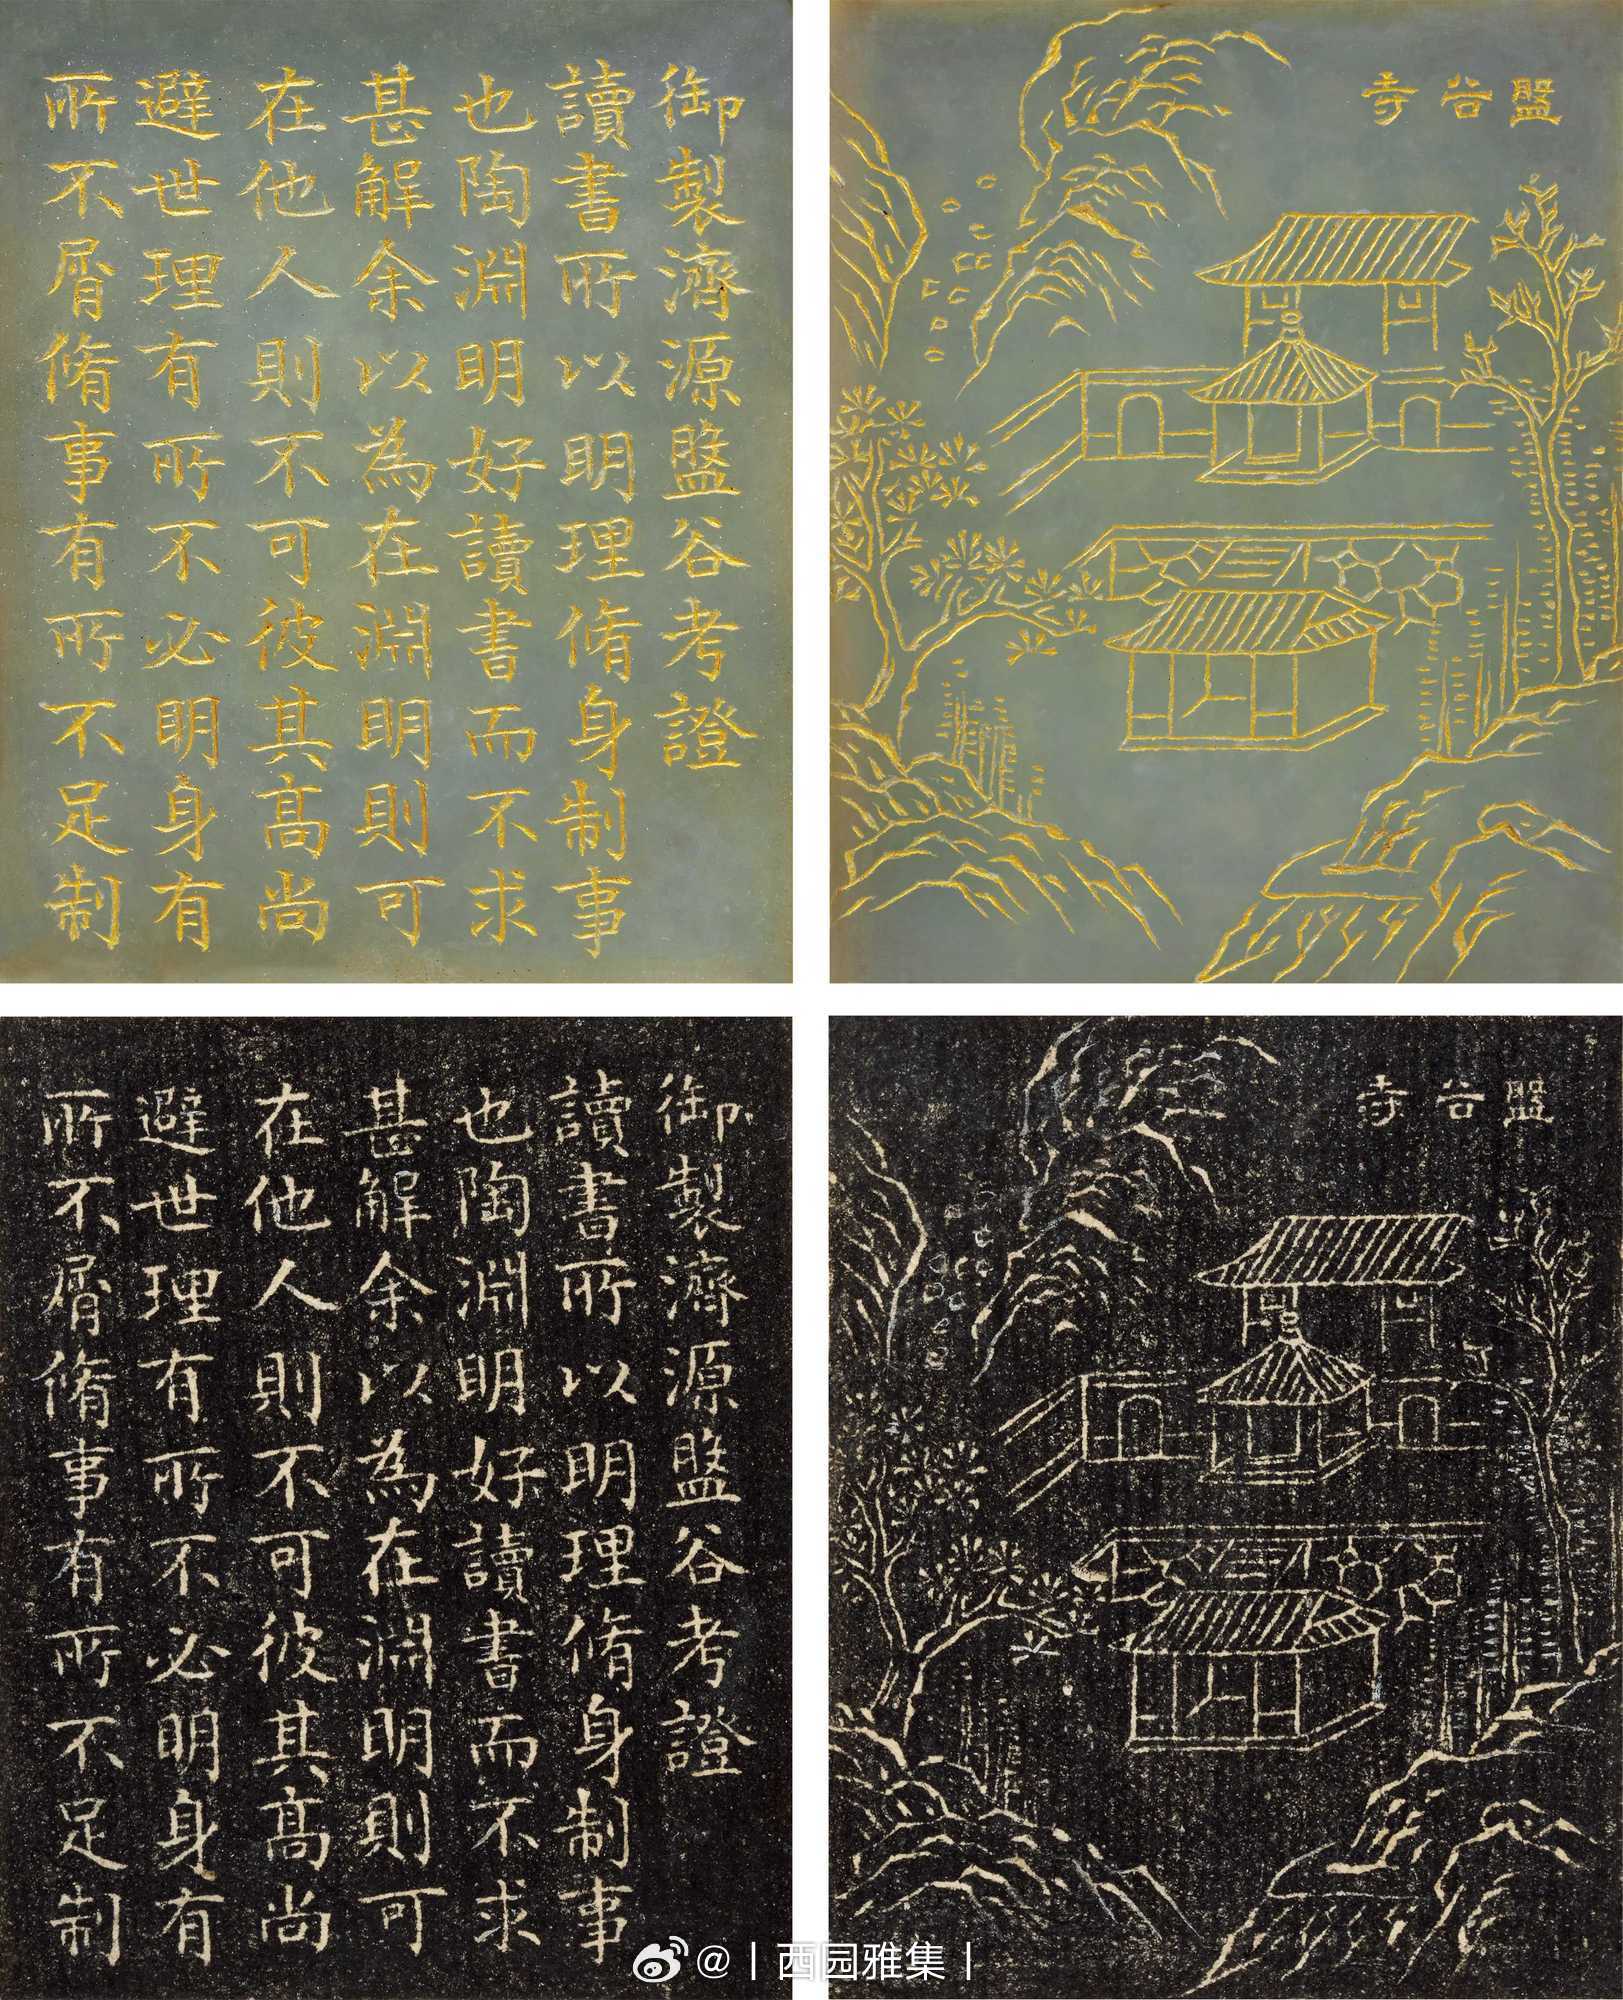 御製濟源盤谷考證
讀書所以明理脩身制事
也陶淵明好讀書而不求
甚解余以為在淵明則可
在他人則不可彼其高尚
避世理有所不必明身有
所不屑脩事有所不足制
盤谷寺
御製濟源盤谷考證
讀書所以明理脩身制事
也陶淵明好讀書而不求
甚解余以為在淵明則可
在他人則不可彼其高尚
避世理有所不必明身有
所不屑脩事有所不足制
盤谷寺
@丨西园雅集丨